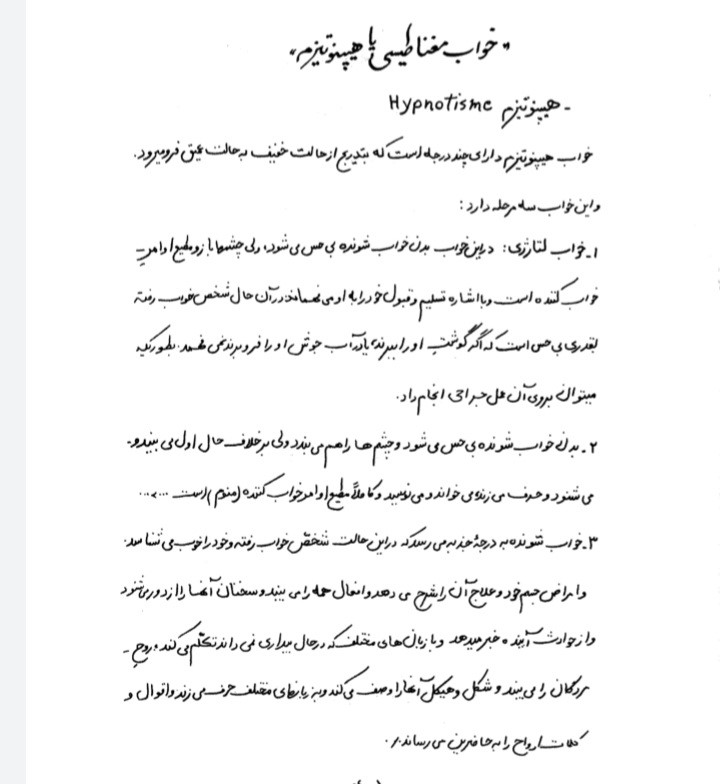 «خواب مغناطیسی یا هیپنوتیزم»
- هیپنوتیزم Hypnotisme
خواب هیپنوتیزم دارای چند درجه است که بتدریج از حالت خفیف به حالت عمیق فرو میرود.
و این خواب سه مرحله دارد:
۱ـ خواب لتارژی: در این خواب بدن خواب شونده بی حس می شود، ولی چشمها باز و مطیع اوامر ـ
خواب کننده است و با اشاره تسلیم و قبول خود را به او می فهماند در آن حال شخص خواب رفته
بقدری بی حس است که اگر گوشت او را ببرند یا در آب جوش او را فرو برند نمی فهمد. بطوریکه
میتوان بروی آن عمل جراحی انجام داد.
۲ـ بدن خواب شونده بی حس می شود و چشم ها را هم می بندد ولی برخلاف حال اول می بیند و ـ
می شنود و حرف می زند می خواند و می نویسد و کاملاً مطیع اوامر خواب کننده (منوم) است .....
۳ـ خواب شونده به درجهٔ جذبه می رسد که در این حالت شخص خواب رفته و خود را خوب می شناسد.
و امراض جسم خود و علاج آن را شرح می دهد و افعال همه را می بیند و سخنان آنها را از دور می شنود
و از حوادث آینده خبر میدهد و با زبان های مختلف که در حال بیداری نمی داند تکلّم می کند. و روح ـ
مردگان را می بیند و شکل و هیکل آنها را وصف می کند و به زبانهای مختلف حرف می زند و اقوال و
کلمات ارواح را به حاضرین می رساند.